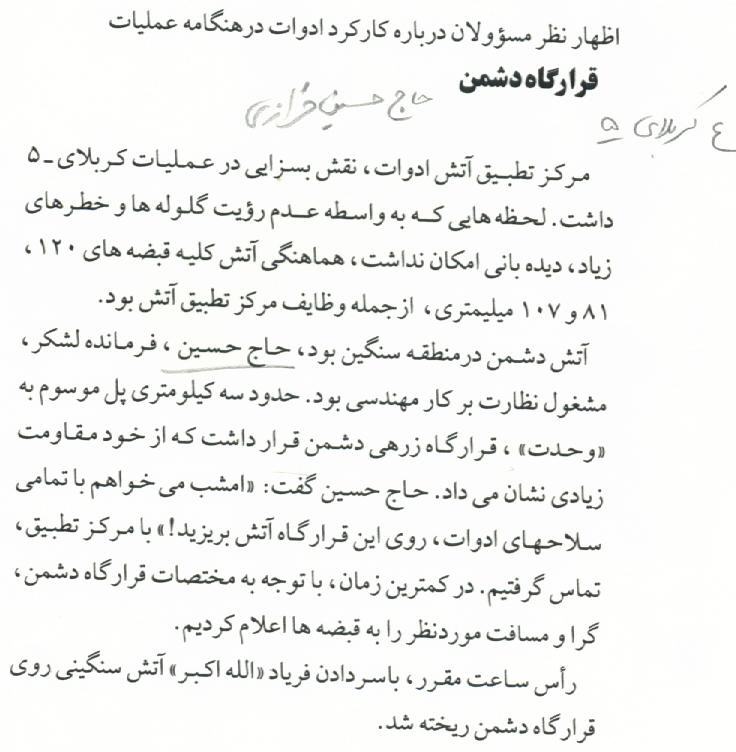 اظهار نظر مسؤولان درباره کارکرد ادوات درهنگامه عملیات
قرارگاه دشمن
حاج حسین خرازی
ع کربلای ۵
مرکز تطبیق آتش ادوات، نقش بسزایی در عملیات کربلای ـ ۵
داشت. لحظه هایی که به واسطه عدم رؤیت گلوله ها و خطرهای
زیاد، دیده بانی امکان نداشت، هماهنگی آتش کلیه قبضه های ۱۲۰،
۸۱ و ۱۰۷ میلیمتری، ازجمله وظایف مرکز تطبیق آتش بود.
آتش دشمن درمنطقه سنگین بود، حاج حسین، فرمانده لشکر،
مشغول نظارت بر کار مهندسی بود. حدود سه کیلومتری پل موسوم به
«وحدت»، قرارگاه زرهی دشمن قرار داشت که از خود مقاومت
زیادی نشان می داد. حاج حسین گفت: «امشب می خواهم با تمامی
سلاحهای ادوات، روی این قرارگاه آتش بریزید!» با مرکز تطبیق،
تماس گرفتیم. در کمترین زمان، با توجه به مختصات قرارگاه دشمن،
گرا و مسافت موردنظر را به قبضه ها اعلام کردیم.
رأس ساعت مقرر، باسردادن فریاد «الله اکبر» آتش سنگینی روی
قرارگاه دشمن ریخته شد.